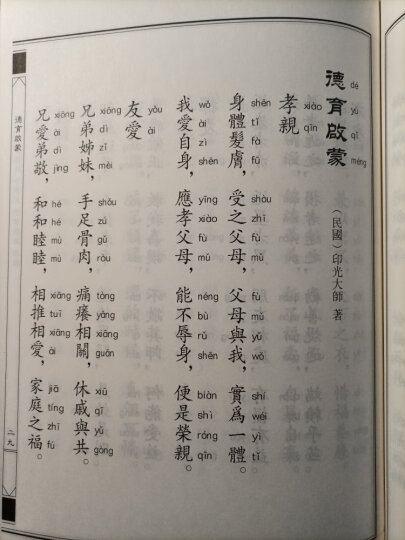 德育啟蒙
dé yù qǐ méng
（民國）印光大師 著
孝親
xiào qīn
身體髮膚，受之父母，父母與我，實爲一體。
shēn tǐ fà fū shòu zhī fù mǔ fù mǔ yǔ wǒ shí wéi yì tǐ
我愛自身，應孝父母，能不辱身，便是榮親。
wǒ ài zì shēn yīng xiào fù mǔ néng bù rǔ shēn biàn shì róng qīn
友愛
yǒu ài
兄弟姊妹，手足骨肉，痛癢相關，休戚與共。
xiōng dì zǐ mèi shǒu zú gǔ ròu tòng yǎng xiāng guān xiū qī yǔ gòng
兄愛弟敬，和和睦睦，相推相愛，家庭之福。
xiōng ài dì jìng hé hé mù mù xiāng tuī xiāng ài jiā tíng zhī fú
德育啟蒙
二九